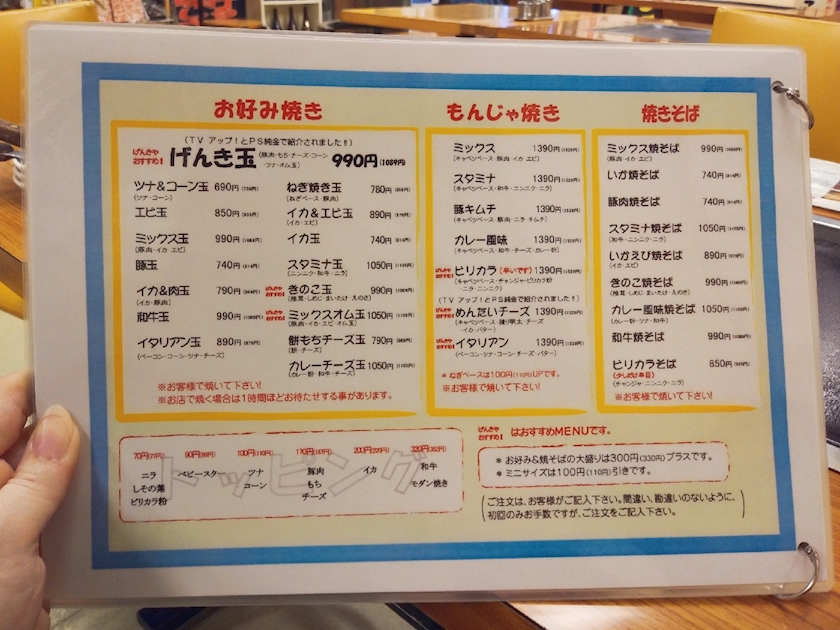 お好み焼き
(TV アップ！とPS純金で紹介されました!!)
げんきや
おすすめ！
げんき玉
(豚肉・もち・チーズ・コーン
・ツナ・オム玉)
990円(1089円)
ツナ&コーン玉 690円
(ツナ・コーン)
エビ玉 850円
ミックス玉 990円
(豚肉・イカ・エビ)
豚玉 740円
イカ&肉玉 790円
(イカ・豚肉)
和牛玉 990円
イタリアン玉 890円
(ベーコン・コーン・ツナ・チーズ)
ねぎ焼き玉 780円
(ねぎベース・豚肉)
イカ&エビ玉 890円
(イカ・エビ)
イカ玉 740円
スタミナ玉 1050円
(ニンニク・和牛・ニラ)
げんきや
おすすめ！
きのこ玉 990円
(椎茸・しめじ・まいたけ・えのき)
げんきや
おすすめ！
ミックスオム玉 1050円
(豚肉・イカ・エビ・オム玉)
餅もちチーズ玉 790円
(餅・チーズ)
カレーチーズ玉 1050円
(カレー粉・和牛・チーズ)
※お客様で焼いて下さい!
※お店で焼く場合は1時間ほどお待たせする事があります。
もんじゃ焼き
ミックス 1390円
(キャベツベース・豚肉・イカ・エビ)
スタミナ 1390円
(キャベツベース・和牛・ニンニク・ニラ)
豚キムチ 1390円
(キャベツベース・豚肉・ニラ・キムチ)
カレー風味 1390円
(キャベツベース・和牛・チーズ・カレー粉)
げんきや
おすすめ！
ピリカラ(辛いです) 1390円
(キャベツベース・チャンジャ・ピリカラ粉
・ニラ・ニンニク)
(TV アップ！とPS純金で紹介されました!!)
げんきや
おすすめ！
めんたいチーズ 1390円
(キャベツベース・練り明太・チーズ
・イカ・バター)
げんきや
おすすめ！
イタリアン 1390円
(ベーコン・ツナ・コーン・チーズ・バター)
＊ねぎベースは100円(110円)UPです。
※お客様で焼いて下さい!
焼きそば
ミックス焼そば 990円
(豚肉・イカ・エビ)
いか焼そば 740円
豚肉焼そば 740円
スタミナ焼そば 1050円
(和牛・ニンニク・ニラ)
いかえび焼そば 890円
(イカ・エビ)
きのこ焼そば 990円
(椎茸・しめじ・まいたけ・えのき)
カレー風味焼そば 1050円
(カレー粉・ツナ・和牛)
和牛焼そば 990円
ピリカラそば 850円
(チャンジャ・ニンニク・ニラ)
※お客様で焼いて下さい!
トッピング
70円(77円)
ニラ
しその葉
ピリカラ粉
90円(99円)
ベビースター
100円(110円)
ツナ
コーン
170円(187円)
豚肉
もち
チーズ
200円(220円)
イカ
320円(352円)
和牛
モダン焼き
げんきや
おすすめ！
はおすすめMENUです。
＊お好み&焼そばの大盛りは300円(330円)プラスです。
＊ミニサイズは100円(110円)引きです。
(ご注文は、お客様がご記入下さい。間違い、勘違いのないように、
初回のみお手数ですが、ご注文をご記入下さい。)